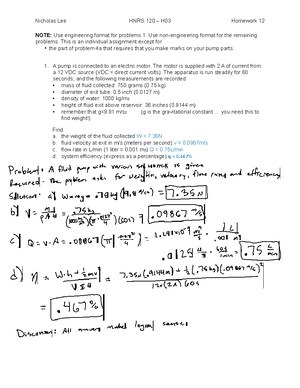 Nicholas Lee HNRS 120 – H03 Homework 12
NOTE: Use engineering format for problems 1. Use non-engineering format for the remaining
problems. This is an individual assignment except for
• the part of problem 4a that requires that you make marks on your pump parts.
1. A pump is connected to an electric motor. The motor is supplied with 2 A of current from
a 12 VDC source (VDC = direct current volts). The apparatus is run steadily for 60
seconds, and the following measurements are recorded:
• mass of fluid collected: 750 grams (0.75 kg)
• diameter of exit tube: 0.5 inch (0.0127 m)
• density of water: 1000 kg/m3
• height of fluid exit above reservoir: 36 inches (0.9144 m)
• remember that g=9.81 m/s2 (g is the gravitational constant … you need this to
find weight!)
Find:
a. the weight of the fluid collected W = 7.36N
b. fluid velocity at exit in m/s (meters per second) v = 0.0987m/s
c. flow rate in L/min (1 liter = 0.001 m3) Q = 0.75L/min
d. system efficiency (express as a percentage) η = 0.467%
Problem: A fluid pump with various is given
Required: The problem asks for weight, velocity, flow rating and efficiency
Solution: a) W = mg = .75 kg (9.8 m/s²) = 7.35 N
b) V = = .09867 m/s
c) Q = V·A = .09867 = .75 L/min
d) η = = 7.35N (.9144m) + ½ (.75kg)(.09867 m/s)²
12v (2A) 60s
= .467 %
Discussion: All answers make logical sense.